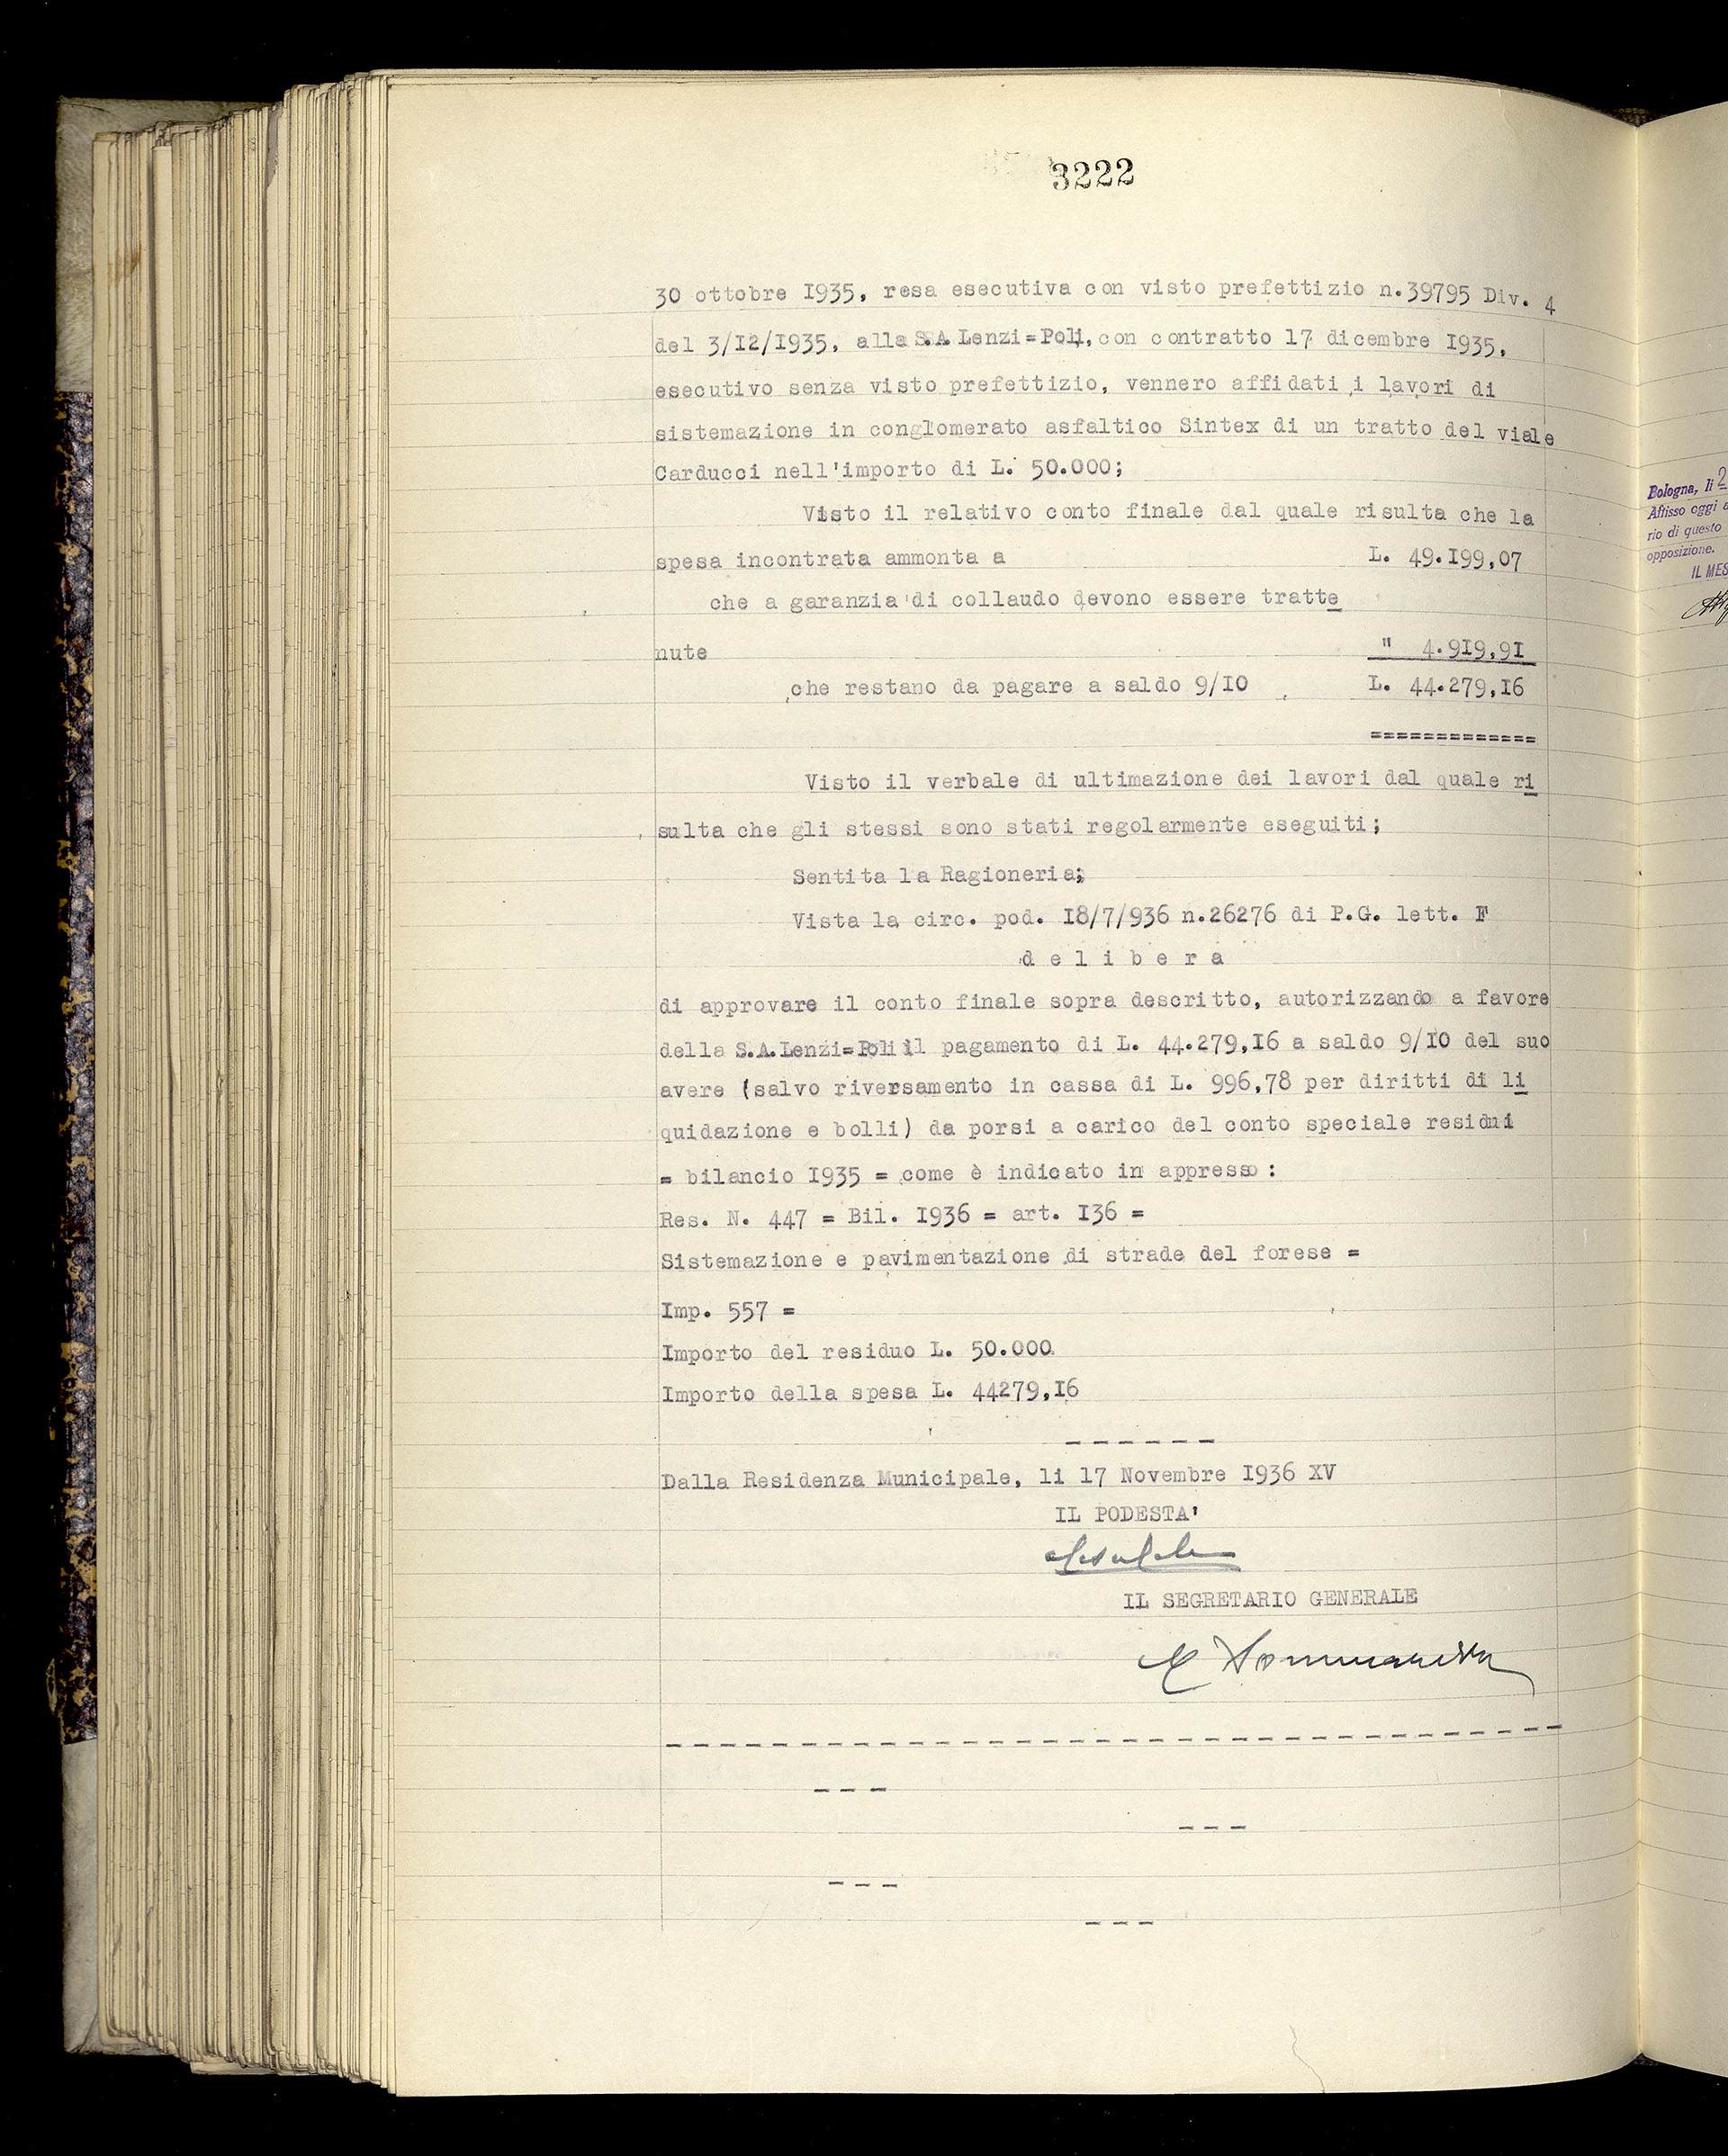 3222
30 ottobre I935, resa esecutiva con visto prefettizio n.39795 Div. 4
del 3/I2/I935, alla S.A.Lenzi=Poli, con contratto 17 dicembre I935,
esecutivo senza visto prefettizio, vennero affidati i lavori di
sistemazione in conglomerato asfaltico Sintex di un tratto del viale
Carducci nell'importo di L. 50.000;
Visto il relativo conto finale dal quale risulta che la
spesa incontrata ammonta a L. 49.I99,07
che a garanzia di collaudo devono essere tratte
nute " 4.9I9,9I
che restano da pagare a saldo 9/IO L. 44.279,I6
=============
Visto il verbale di ultimazione dei lavori dal quale ri
sulta che gli stessi sono stati regolarmente eseguiti;
Sentita la Ragioneria;
Vista la circ. pod. I8/7/936 n.26276 di P.G. lett. F
d e l i b e r a
di approvare il conto finale sopra descritto, autorizzando a favore
della S.A.Lenzi=Poli il pagamento di L. 44.279,I6 a saldo 9/IO del suo
avere (salvo riversamento in cassa di L. 996,78 per diritti di li
quidazione e bolli) da porsi a carico del conto speciale residui
= bilancio I935 = come è indicato in appresso :
Res. N. 447 = Bil. I936 = art. I36 =
Sistemazione e pavimentazione di strade del forese =
Imp. 557 =
Importo del residuo L. 50.000
Importo della spesa L. 44279,I6
------
Dalla Residenza Municipale, li I7 Novembre I936 XV
IL PODESTA'
IL SEGRETARIO GENERALE
Bologna, li 2
Affisso oggi
rio di questo
opposizione.
IL MES